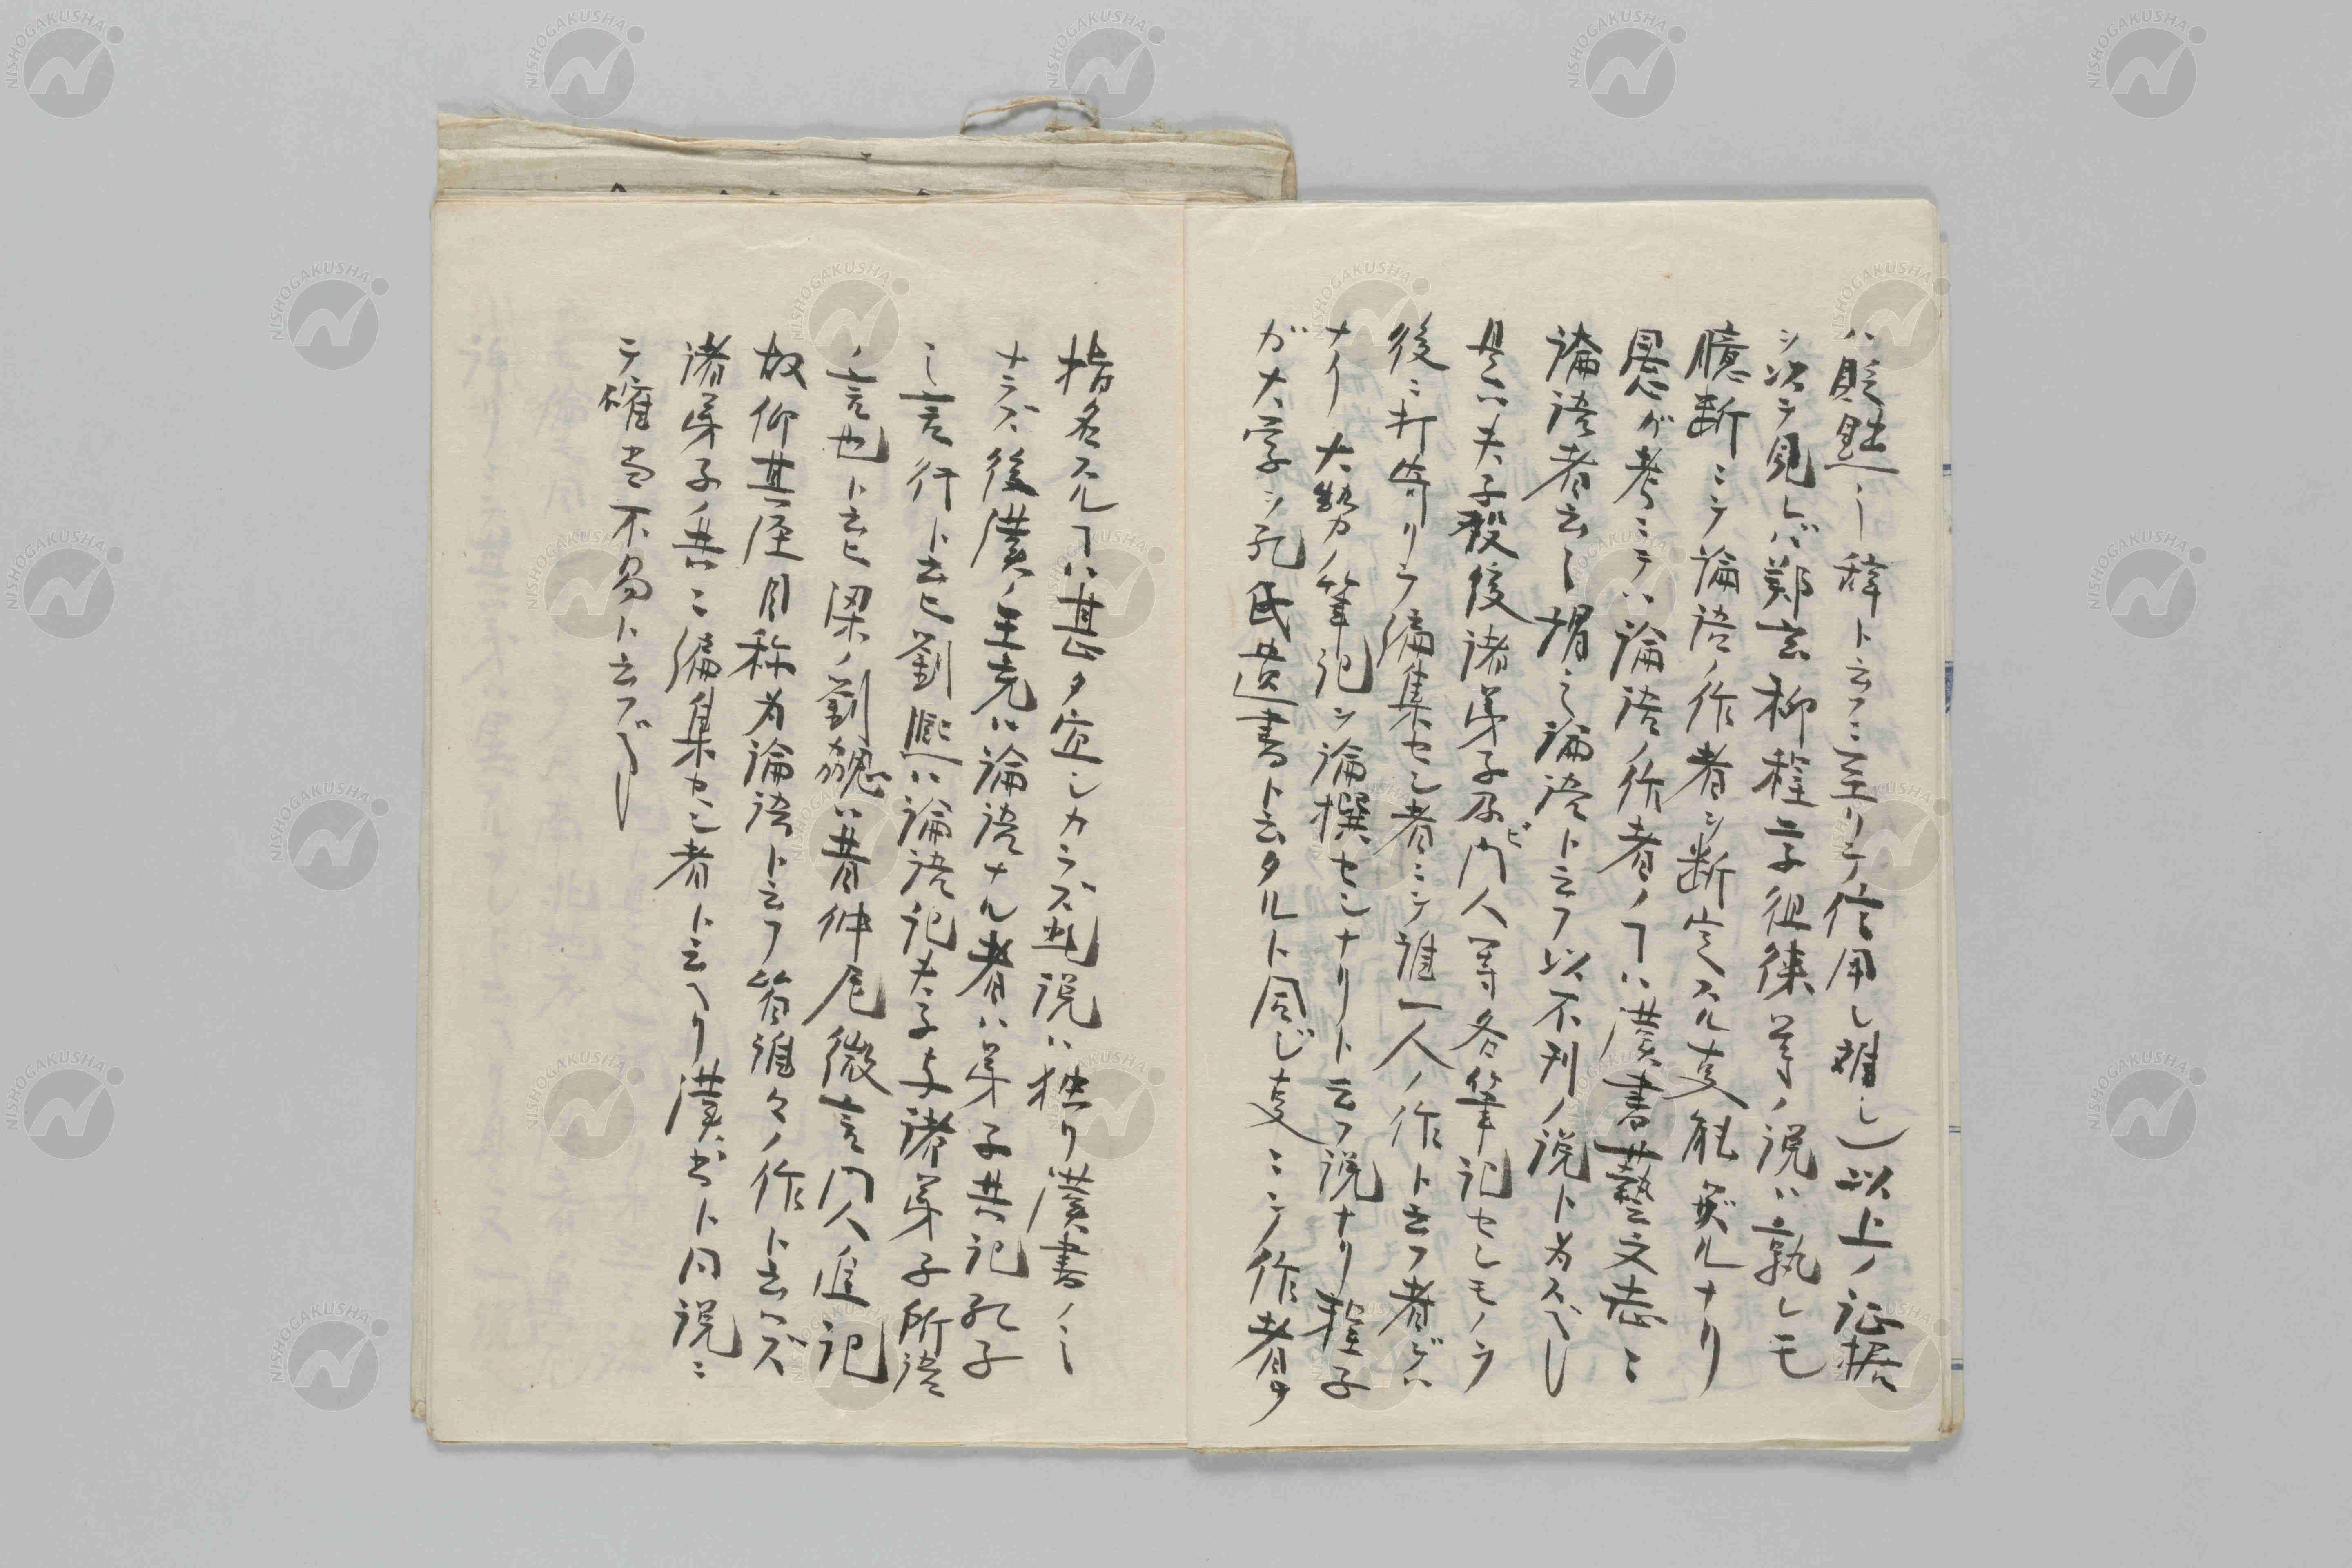 ハ貶黜ノ辞ト云フニ至リテ信用シ難シ)以上ノ証拠
ヲ以テ見レバ鄭玄柳程二子徂徠等ノ説ハ孰レモ
臆断ニテ論語ノ作者ヲ断定スル事能ザルナリ
愚ガ考ニテハ論語ノ作者ノヿハ漢書藝文志ニ
論語者云々謂之論語ト云フ以不刊ノ説ト為スベシ
是ハ夫子歿後諸弟子及ビ門人等各筆記セシモノヲ
後ニ打寄リテ編集セシ者ニテ誰一人ノ作ト云フ者デハ
ナイ大勢ノ筆記ヲ論撰センナリト云フ説ナリ程子
ガ大学ヲ孔氏遺書ト云タルト同ジ事ニテ作者ヲ
指名スルヿハ甚タ宜シカラズ此説ハ独リ漢書ノミ
ナラズ後漢ノ王充ハ論語ナル者ハ弟子共記孔子
之言行ト云ヒ劉熙ハ論語記夫子与諸弟子所語
ノ言也ト云ヒ梁ノ劉勰ハ昔仲尼微言門人追記
故仰其経目称為論語ト云フ皆誰々ノ作ト云ハズ
諸弟子ノ共ニ編集セシ者ト云ヘリ漢書ト同説ニ
テ確当不易ト云フベシ
NISHOGAKUSHA